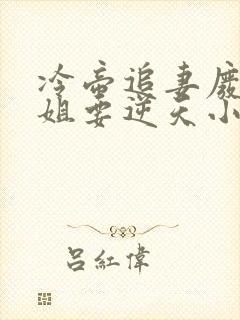 冷帝追妻廢
姐要逆天小
吕紅偉